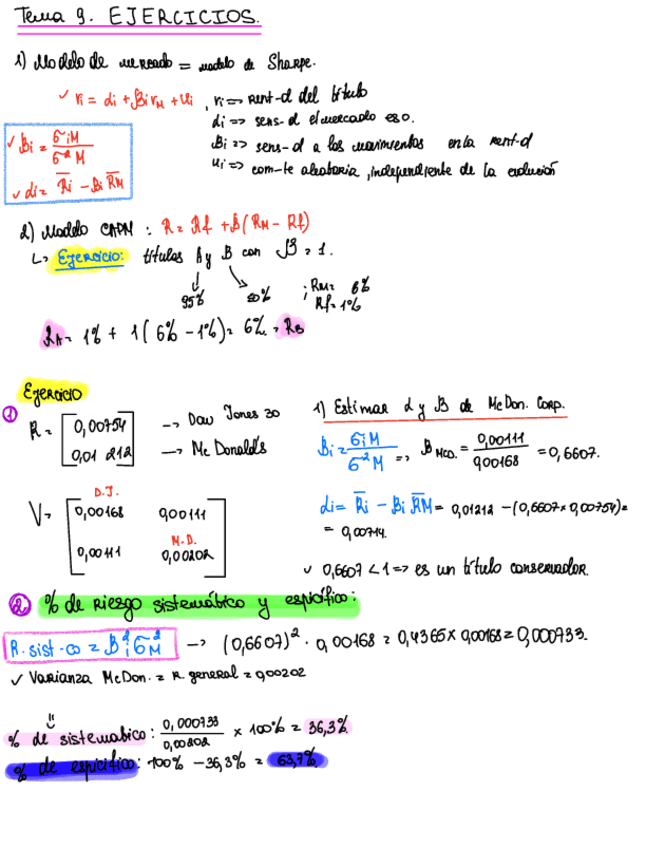 Tema 9. EJERCICIOS.
1) Modelo de mercado = modelo de Sharpe.
✓ ri = αi + βi rM + ui , ri => rent-d del título
αi => sens-d el mercado es 0.
βi => sens-d a los movimientos en la rent-d
ui => com-te aleatoria, independiente de la evolución
✓ βi = σiM / σ²M
✓ αi = R̄i - βi R̄M
2) Modelo CAPM : R = Rf + β (RM - Rf)
↳ Ejercicio: títulos A y B con β = 1.
95% 50% ; RM = 6%
Rf = 1%
RA = 1% + 1 (6% - 1%) = 6% = RB
Ejercicio
① R = [0,00754 → Dow Jones 30
0,01 212] → Mc Donald's
1) Estimar α y β de McDon. Corp.
βi = σiM / σ²M => βMCD. = 0,00111 / 0,00168 = 0,6607.
D.J.
V = [0,00168 0,00111
M.D.
0,00111 0,00202]
αi = R̄i - βi R̄M = 0,01212 - (0,6607 × 0,00754) =
= 0,00714.
✓ 0,6607 < 1 => es un título conservador.
② % de Riesgo sistemático y espícifico:
R. sist-co = βi² σM² → (0,6607)² · 0,00168 = 0,4365 × 0,00168 = 0,000733.
✓ Varianza McDon. = R. general = 0,00202
% de sistematico : 0,000733 / 0,00202 × 100% = 36,3%
% de espicifico : 100% - 36,3% = 63,7%